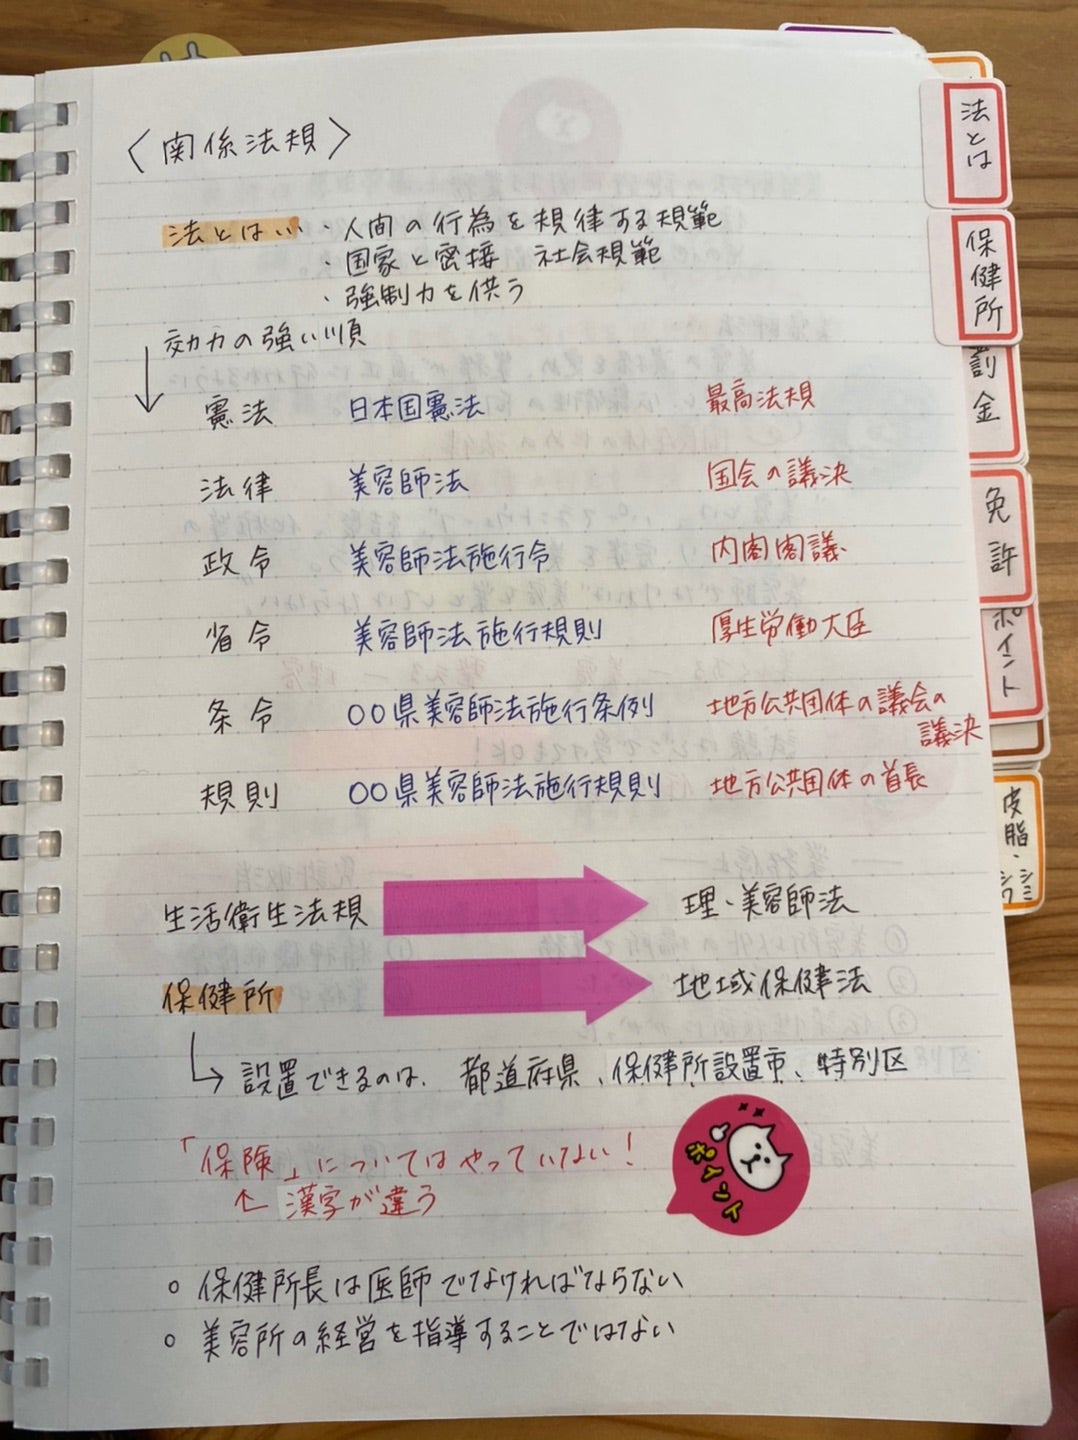 〈関係法規〉
法とはいい・人間の行為を規律する規範
・国家と密接 社会規範
・強制力を供う
効力の強い順
憲法 日本国憲法 最高法規
法律 美容師法 国会の議決
政令 美容師法施行令 内閣閣議
省令 美容師法施行規則 厚生労働大臣
条令 〇〇県美容師法施行条例 地方公共団体の議会の
議決
規則 〇〇県美容師法施行規則 地方公共団体の首長
生活衛生法規 理・美容師法
保健所 地域保健法
設置できるのは、都道府県、保健所設置市、特別区
「保険」についてはやっていない!
漢字が違う
ポイント
○ 保健所長は医師でなければならない
○ 美容所の経営を指導することではない
法とは
保健所
罰金
免許
ポイント
皮脂・シミ
シワ